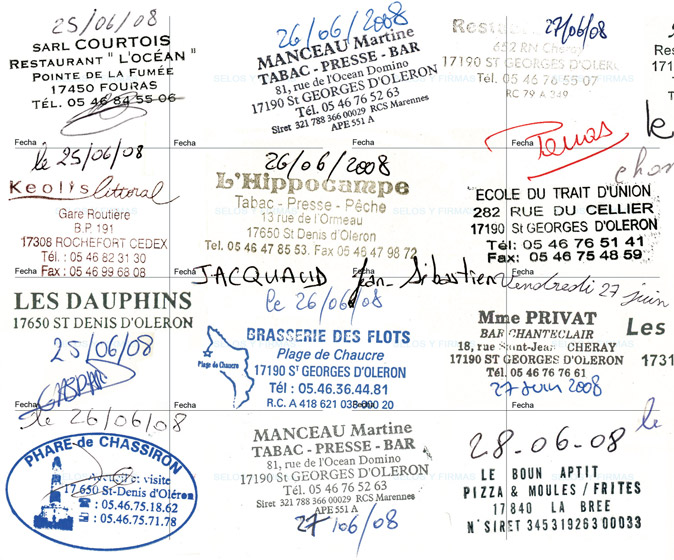 25/06/08
SARL COURTOIS
RESTAURANT " L'OCÉAN "
POINTE DE LA FUMÉE
17450 FOURAS
TÉL. 05 46 84 55 06
Fecha
26/06/2008
MANCEAU Martine
TABAC - PRESSE - BAR
81, rue de l'Ocean Domino
17190 St GEORGES D'OLERON
Tél. 05 46 76 52 63
Siret 321 788 366 00029 RCS Marennes
APE 551 A
Fecha
27/06/08
652 RN Cheray
17190 ST GEORGES D'OLERON
Tél. 05 46 76 55 07
RC 79 A 249
Fecha
le 25/06/08
Keolis littoral
Gare Routière
B.P. 191
17308 ROCHEFORT CEDEX
Tél. : 05 46 82 31 30
Fax : 05 46 99 68 08
Fecha
26/06/2008
L'Hippocampe
Tabac - Presse - Pêche
13 rue de l'Ormeau
17650 St Denis d'Oléron
Tel. 05 46 47 85 53. Fax 05 46 47 98 72
SELOS Y FIRMAS
Fecha
"ECOLE DU TRAIT D'UNION
282 RUE DU CELLIER
17190 St GEORGES D'OLERON
Tél: 05 46 76 51 41
Fax: 05 46 75 48 59
Fecha
LES DAUPHINS
17650 ST DENIS D'OLERON
25/06/08
Fecha
JACQUAUD Jean-Sébastien
le 26/06/08
BRASSERIE DES FLOTS
Plage de Chaucre
Plage de Chaucre
17190 St GEORGES D'OLERON
Tél : 05.46.36.44.81
R.C. A 418 621 038 000 20
Fecha
Vendredi 27 juin
Mme PRIVAT
BAR CHANTECLAIR
18, rue Saint-Jean CHERAY
17190 ST GEORGES D'OLERON
Tél. 05 46 76 76 61
27 Juin 2008
Les
1731
Fecha
le 26/06/08
PHARE de CHASSIRON
Accueil et visite
17650 St-Denis d'Oléron
: 05.46.75.18.62
: 05.46.75.71.78
SELOS Y FIRMAS
MANCEAU Martine
TABAC - PRESSE - BAR
81, rue de l'Ocean Domino
17190 St GEORGES D'OLERON
Tél. 05 46 76 52 63
Siret 321 788 366 00029 RCS Marennes
APE 551 A
27/06/08
le
28-06-08
LE BOUN APTIT
PIZZA & MOULES / FRITES
17840 LA BREE
N° SIRET 345319263 00033